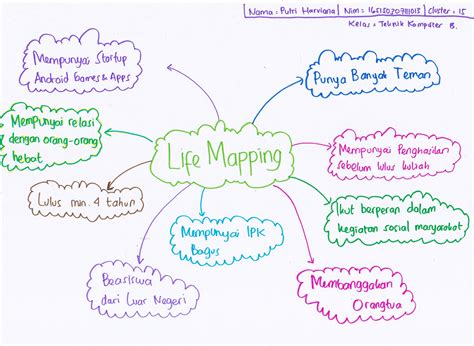 Nama : Putri Harviana | Nim : 165150207111013 | Cluster : 15
Kelas : Teknik Komputer B.
Mempunyai Startup
Android Games & Apps
Punya Banyak Teman
Mempunyai relasi
dengan orang-orang
hebat
Life Mapping
Mempunyai Penghasilan
sebelum lulus kuliah
Lulus min. 4 tahun
Mempunyai IPK
Bagus
Ikut berperan dalam
kegiatan sosial masyarakat
Beasiswa
dari Luar Negeri
Membanggakan
Orangtua